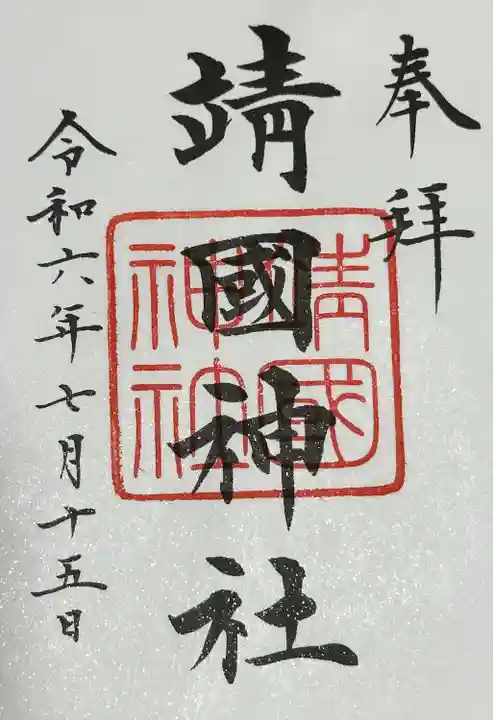 奉拜
靖國神社
靖國神社
令和六年七月十五日